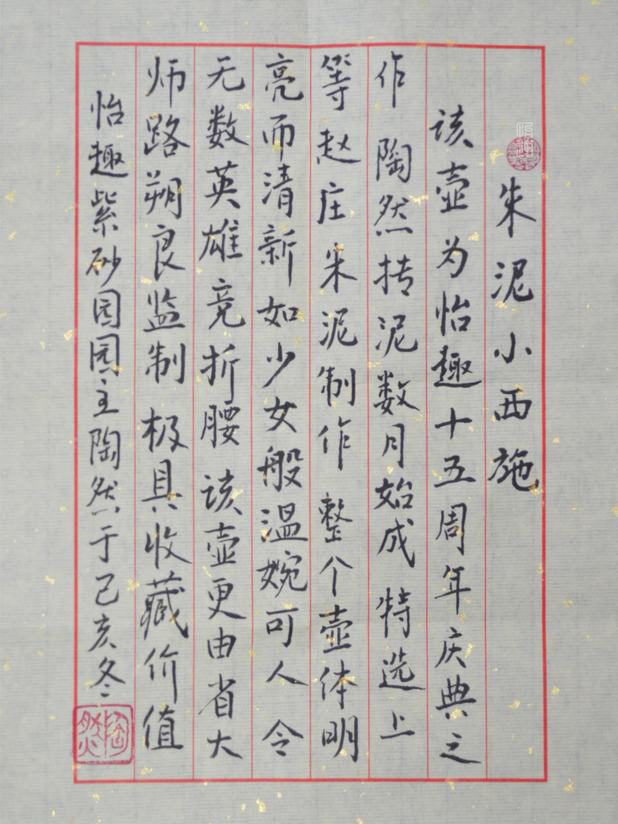 朱泥小西施
该壶为怡趣十五周年庆典之
作 陶然抟泥数月始成 特选上
等赵庄朱泥制作 整个壶体明
亮而清新如少女般温婉可人 令
无数英雄竞折腰 该壶更由省大
师路朔良监制 极具收藏价值
怡趣紫砂园园主陶然于己亥冬
陶然